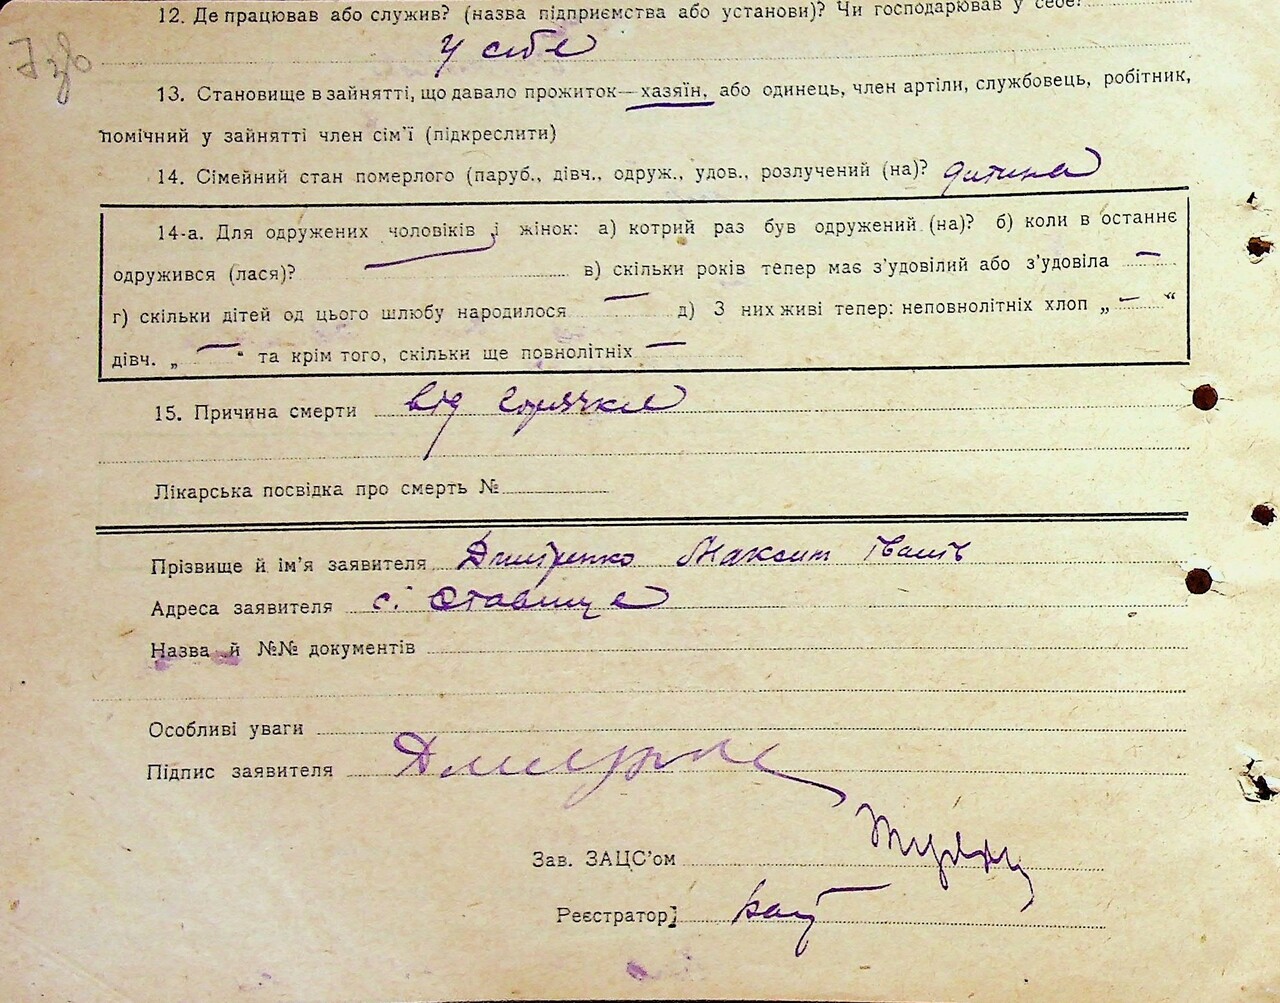 12. Де працював або служив? (назва підприємства або установи)? Чи господарював у себе?
У себе
13. Становище в зайнятті, що давало прожиток—хазяїн, або одинець, член артіли, службовець, робітник,
помічний у зайнятті член сім'ї (підкреслити)
14. Сімейний стан померлого (паруб., дівч., одруж., удов., розлучений (на)? дитина
14-а. Для одружених чоловіків і жінок: а) котрий раз був одружений (на)? б) коли в останнє
одружився (лася)? — в) скільки років тепер має з'удовілий або з'удовіла —
г) скільки дітей од цього шлюбу народилося — д) З них живі тепер: неповнолітніх хлоп „ — “
дівч. „ — “ та крім того, скільки ще повнолітніх —
15. Причина смерти від горячки
Лікарська посвідка про смерть №
Прізвище й ім'я заявителя Дмитренко Максим Іванів
Адреса заявителя с. Ставище
Назва й №№ документів
Особливі уваги
Підпис заявителя
Зав. ЗАЦС'ом
Реєстратор